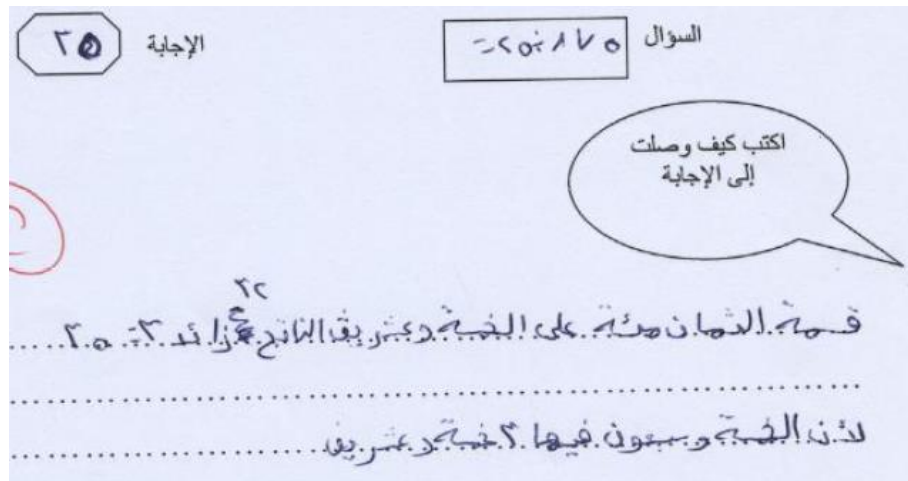 السؤال ٨٧٥÷٢٥= الإجابة ٣٥
اكتب كيف وصلت
إلى الإجابة
٣٢
قسمة الثمان مئة على الخمسة وعشرين الناتج زائد ٣= ٣٥
لأن الخمسة وسبعون فيها ٣ خمسة وعشرين